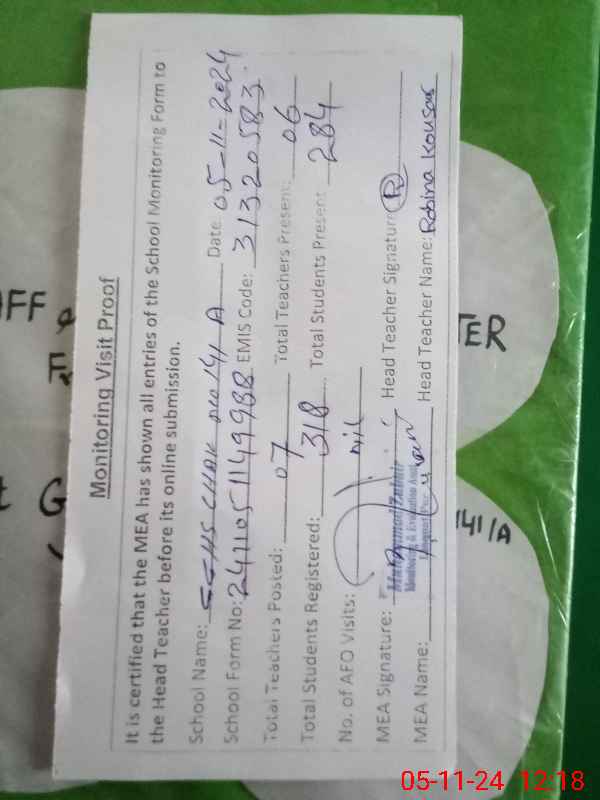 Monitoring Visit Proof
It is certified that the MEA has shown all entries of the School Monitoring Form to
the Head Teacher before its online submission.
School Name: GGHS CHAK NO 141 A Date: 05-11-2024
School Form No: 2411051149988 EMIS Code: 31320583
Total Teachers Posted: 07 Total Teachers Present: 06
Total Students Registered: 318 Total Students Present: 284
No. of AFO Visits: nil
MEA Signature: Head Teacher Signature
Muhammad Zubair
Monitoring & Evaluation Asst
MEA Name: Head Teacher Name: Robina Kousar
FF
TER
G
141/A
05-11-24 12:18